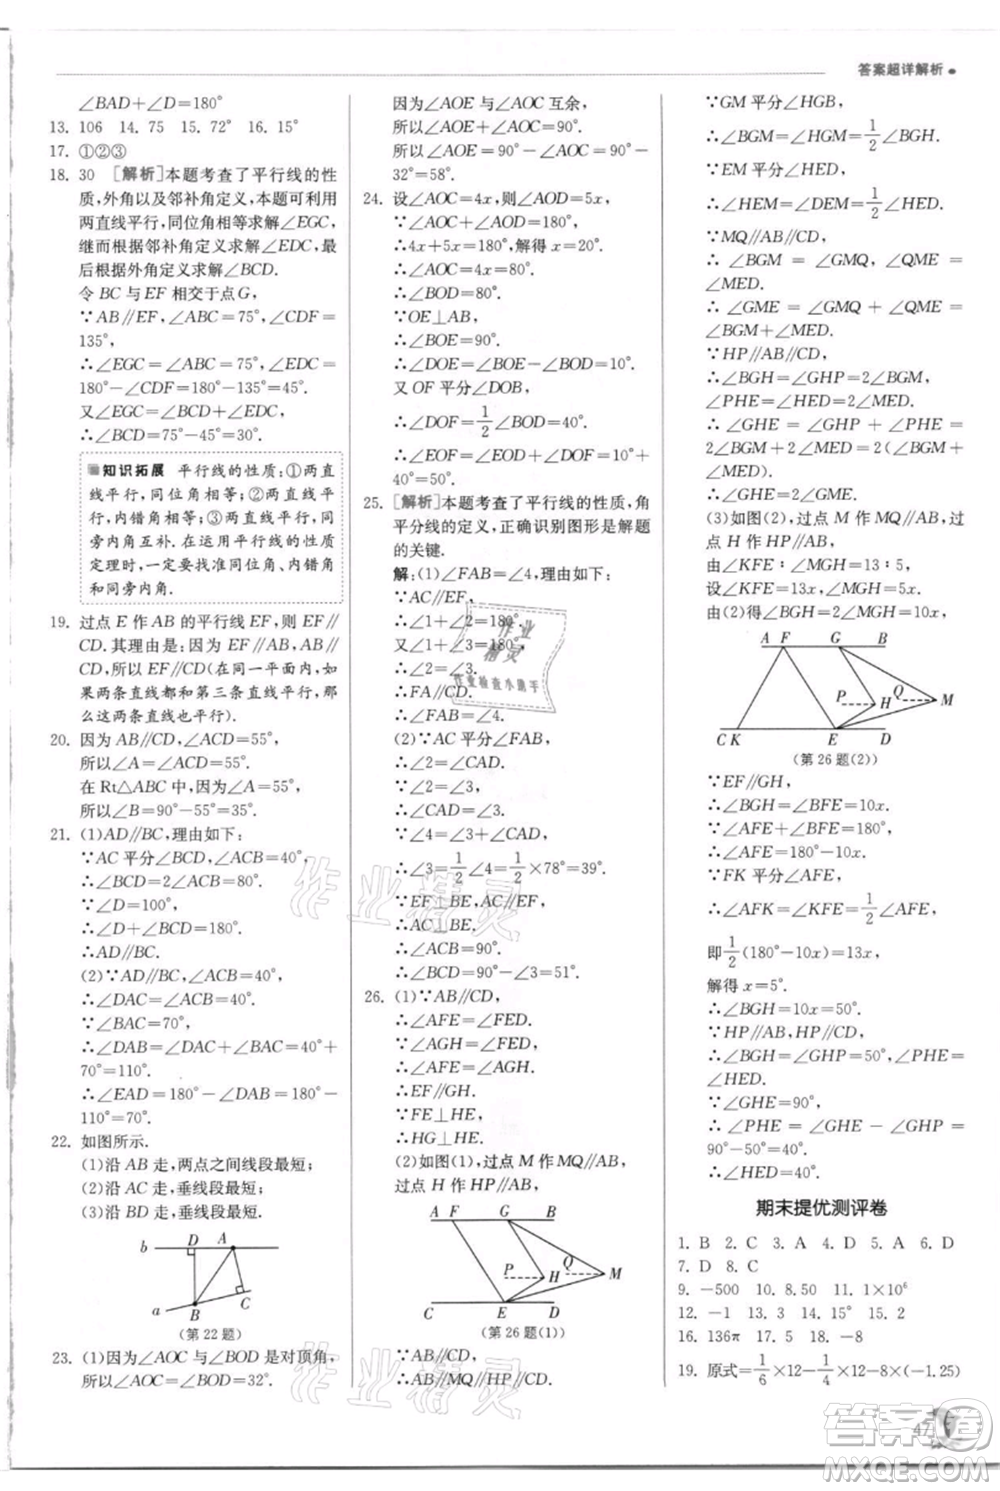 答案超详解析
∠BAD+∠D=180°
13. 106 14. 75 15. 72° 16. 15°
17. ①②③
18. 30 [解析]本题考查了平行线的性
质,外角以及邻补角定义,本题可利用
两直线平行,同位角相等求解∠EGC,
继而根据邻补角定义求解∠EDC,最
后根据外角定义求解∠BCD.
令BC与EF相交于点G,
∵AB∥EF,∠ABC=75°,∠CDF=
135°,
∴∠EGC=∠ABC=75°,∠EDC=
180°-∠CDF=180°-135°=45°.
又∠EGC=∠BCD+∠EDC,
∴∠BCD=75°-45°=30°.
知识拓展 平行线的性质:①两直
线平行,同位角相等;②两直线平
行,内错角相等;③两直线平行,同
旁内角互补.在运用平行线的性质
定理时,一定要找准同位角、内错角
和同旁内角.
19. 过点E作AB的平行线EF,则EF∥
CD.其理由是:因为EF∥AB,AB∥
CD,所以EF∥CD(在同一平面内,如
果两条直线和第三条直线平行,那
么这两条直线也平行).
20. 因为AB∥CD,∠ACD=55°,
所以∠A=∠ACD=55°.
在Rt△ABC中,∠A=55°,
所以∠B=90°-55°=35°.
21. (1)AD∥BC,理由如下:
∵AC平分∠BCD,∠ACB=40°,
∴∠BCD=2∠ACB=80°.
∵∠D=100°,
∴∠D+∠BCD=180°.
∴AD∥BC.
(2)∵AD∥BC,∠ACB=40°,
∴∠DAC=∠ACB=40°.
∵∠BAC=70°,
∴∠DAB=∠DAC+∠BAC=40°+
70°=110°.
∴∠EAD=180°-∠DAB=180°-
110°=70°.
22. 如图所示.
(1)沿AB走,两点之间线段最短;
(2)沿AC走,垂线段最短;
(3)沿BD走,垂线段最短.
b D A
a B C
(第22题)
23. (1)因为∠AOC与∠BOD是对顶角,
所以∠AOC=∠BOD=32°.
因为∠AOE与∠AOC互余,
所以∠AOE+∠AOC=90°.
所以∠AOE=90°-∠AOC=90°-
32°=58°.
24. 设∠AOC=4x,则∠AOD=5x,
∵∠AOC+∠AOD=180°,
∴4x+5x=180°,解得x=20°.
∴∠AOC=4x=80°.
∴∠BOD=80°.
∵OE⊥AB,
∴∠BOE=90°.
∴∠DOE=∠BOE-∠BOD=10°.
又OF平分∠DOB,
∴∠DOF=1/2∠BOD=40°.
∴∠EOF=∠EOD+∠DOF=10°+
40°=50°.
25. [解析]本题考查了平行线的性质,角
平分线的定义,正确识别图形是解题
的关键.
解:(1)∠FAB=∠4,理由如下:
∵AC∥EF,
∴∠1+∠2=180°.
又∠1+∠3=180°,
∴∠2=∠3.
∴FA∥CD.
∴∠FAB=∠4.
(2)∵AC平分∠FAB,
∴∠2=∠CAD.
∵∠2=∠3,
∴∠CAD=∠3.
∵∠4=∠3+∠CAD,
∴∠3=1/2∠4=1/2×78°=39°.
∵EF⊥BE,AC∥EF,
∴AC⊥BE.
∴∠ACB=90°.
∴∠BCD=90°-∠3=51°.
26. (1)∵AB∥CD,
∴∠AFE=∠FED.
∵∠AGH=∠FED,
∴∠AFE=∠AGH.
∴EF∥GH.
∵FE⊥HE,
∴HG⊥HE.
(2)如图(1),过点M作MQ∥AB,
过点H作HP∥AB,
A F G B
P H Q M
C E D
(第26题(1))
∵AB∥CD,
∴AB∥MQ∥HP∥CD.
∵GM平分∠HGB,
∴∠BGM=∠HGM=1/2∠BGH.
∵EM平分∠HED,
∴∠HEM=∠DEM=1/2∠HED.
∵MQ∥AB∥CD,
∴∠BGM=∠GMQ,∠QME=
∠MED.
∴∠GME=∠GMQ+∠QME=
∠BGM+∠MED.
∵HP∥AB∥CD,
∴∠BGH=∠GHP=2∠BGM,
∠PHE=∠HED=2∠MED.
∴∠GHE=∠GHP+∠PHE=
2∠BGM+2∠MED=2(∠BGM+
∠MED).
∴∠GHE=2∠GME.
(3)如图(2),过点M作MQ∥AB,过
点H作HP∥AB,
由∠KFE∶∠MGH=13∶5,
设∠KFE=13x,∠MGH=5x.
由(2)得∠BGH=2∠MGH=10x.
A F G B
P H Q M
C K E D
(第26题(2))
∵EF∥GH,
∴∠BGH=∠BFE=10x.
∵∠AFE+∠BFE=180°,
∴∠AFE=180°-10x.
∵FK平分∠AFE,
∴∠AFK=∠KFE=1/2∠AFE,
即1/2(180°-10x)=13x,
解得x=5°.
∴∠BGH=10x=50°.
∵HP∥AB,HP∥CD,
∴∠BGH=∠GHP=50°,∠PHE=
∠HED.
∵∠GHE=90°,
∴∠PHE=∠GHE-∠GHP=
90°-50°=40°.
∴∠HED=40°.
期末提优测评卷
1. B 2. C 3. A 4. D 5. A 6. D
7. D 8. C
9. -500 10. 8.50 11. 1×10⁶
12. -1 13. 3 14. 15° 15. 2
16. 136π 17. 5 18. -8
19. 原式=1/6×12-1/4×12-8×(-1.25)
47
作业
精灵
作业检查小助手
作业精灵
作业精灵
答案圈
MXQE.COM